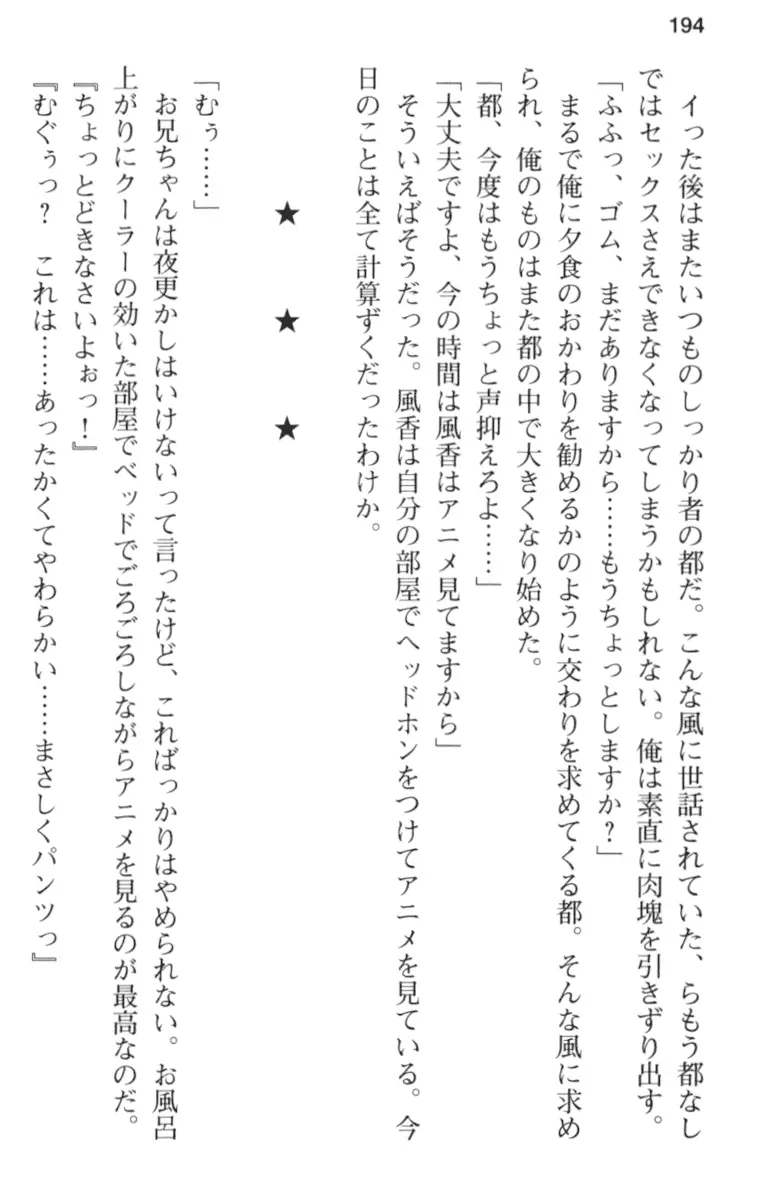 194
イった後はまたいつものしっかり者の都だ。こんな風に世話されていた、らもう都なし
ではセックスさえできなくなってしまうかもしれない。俺は素直に肉塊を引きずり出す。
「ふふっ、ゴム、まだありますから……もうちょっとしますか?」
まるで俺に夕食のおかわりを勧めるかのように交わりを求めてくる都。そんな風に求め
られ、俺のものはまた都の中で大きくなり始めた。
「都、今度はもうちょっと声抑えろよ……」
「大丈夫ですよ、今の時間は風香はアニメ見てますから」
そういえばそうだった。風香は自分の部屋でヘッドホンをつけてアニメを見ている。今
日のことは全て計算ずくだったわけか。
★ ★ ★
「むぅ……」
お兄ちゃんは夜更かしはいけないって言ったけど、こればっかりはやめられない。お風呂
上がりにクーラーの効いた部屋でベッドでごろごろしながらアニメを見るのが最高なのだ。
『ちょっとどきなさいよぉっ!』
『むぐぅっ? これは……あったかくてやわらかい……まさしくパンツっ』